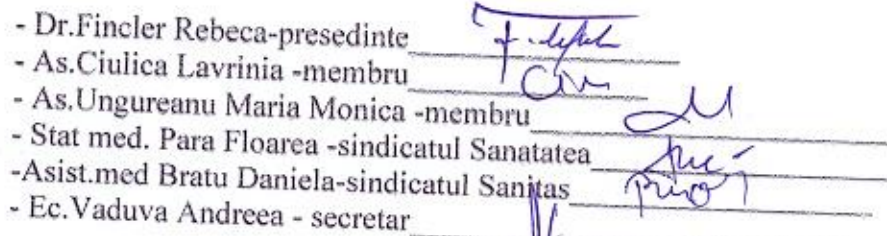 - Dr.Fincler Rebeca-presedinte
- As.Ciulica Lavrinia -membru
- As.Ungureanu Maria Monica -membru
- Stat med. Para Floarea -sindicatul Sanatatea
-Asist.med Bratu Daniela-sindicatul Sanitas
- Ec.Vaduva Andreea - secretar